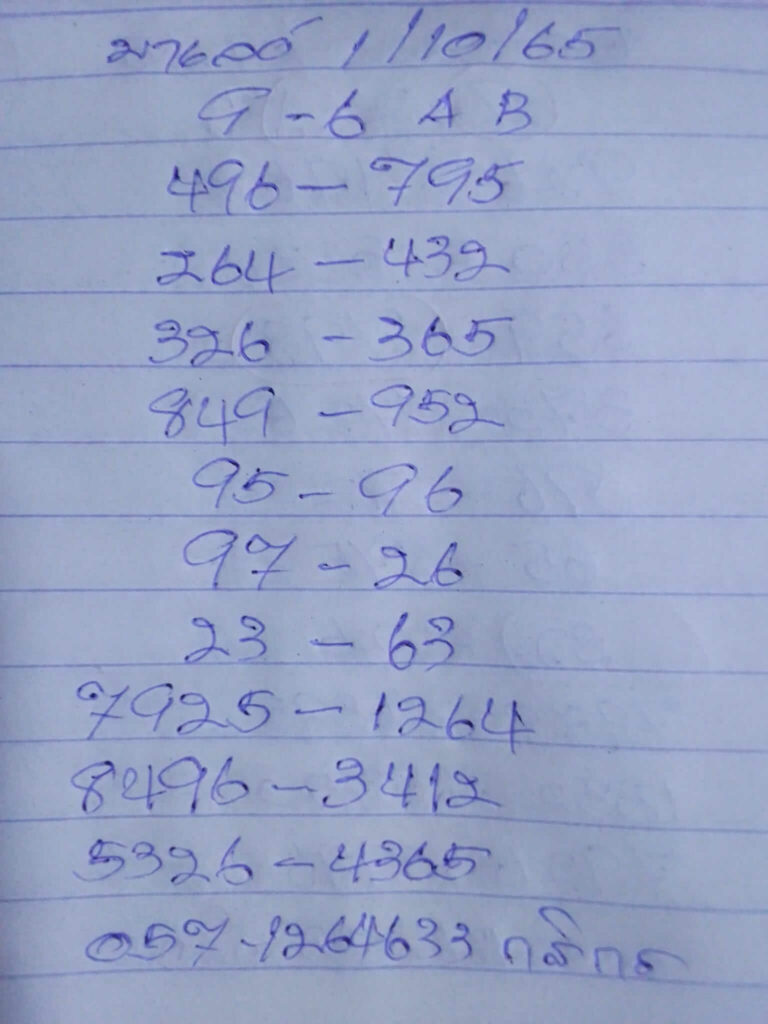 มาเลย์ 1/10/65
9-6 A B
496 - 795
264 - 432
326 - 365
849 - 952
95 - 96
97 - 26
23 - 63
7925 - 1264
8496 - 3412
5326 - 4365
057-1264633 กสิกร